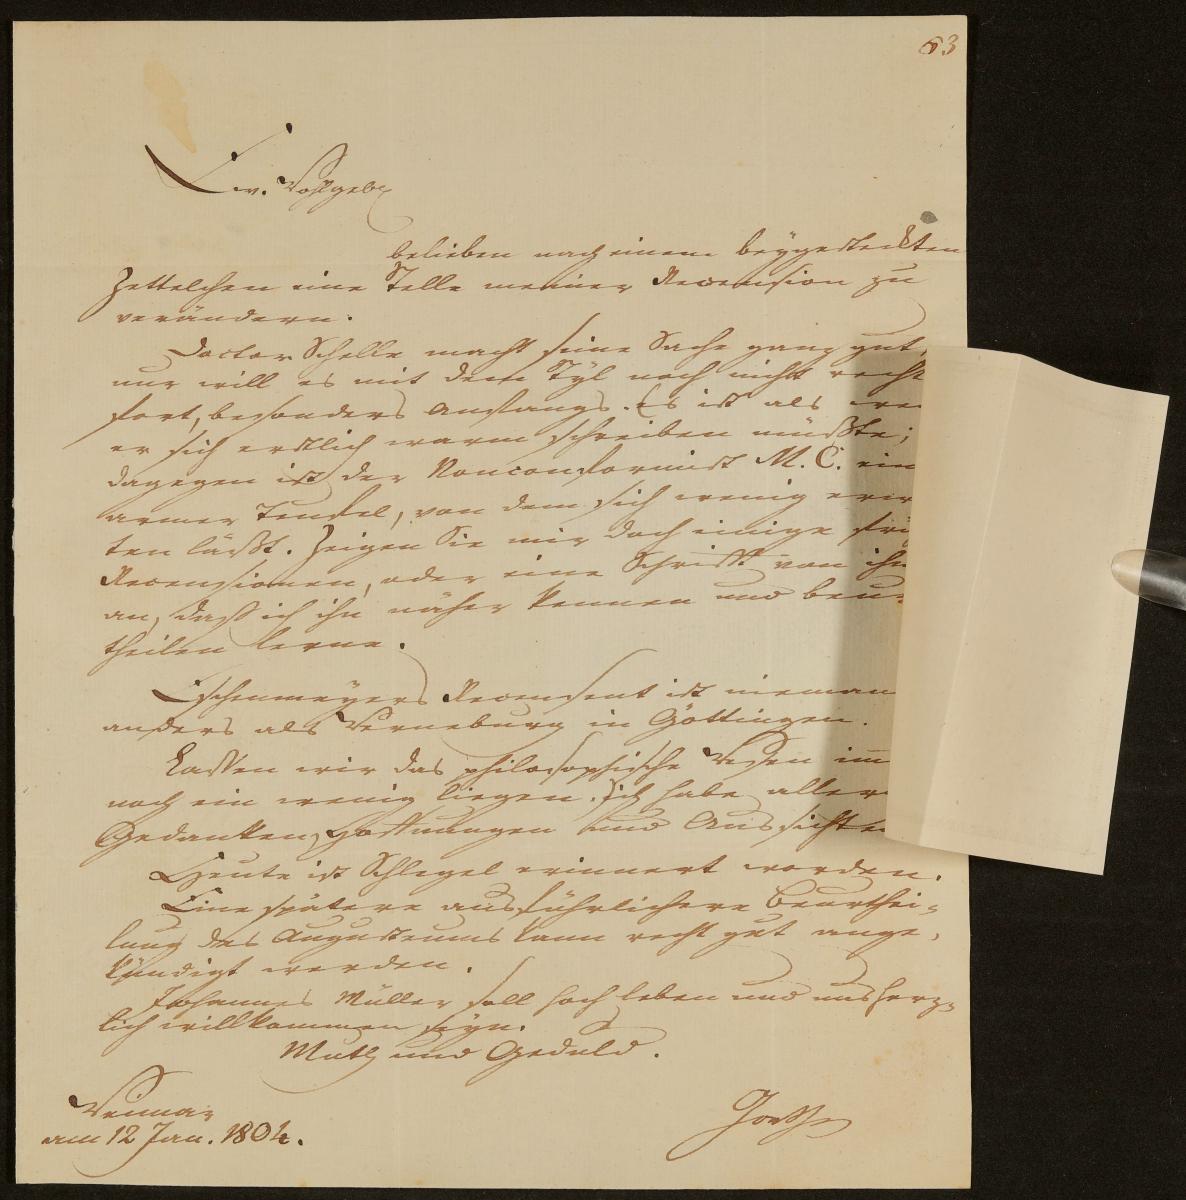 63
Ew. Wohlgeb.
belieben nach einem beygesteckten
Zettelchen eine Stelle meiner Recension zu
verändern.
Doctor Schelle macht seine Sache ganz gut,
nur will es mit dem Styl noch nicht recht
fort, besonders Anfangs. Es ist als
er sich erstlich warm schreiben müßte;
dagegen ist der Nonconformist M. C. ein
armer Teufel, von dem sich wenig erwar
ten läßt. Zeigen Sie mir doch einige
Recensionen, oder eine Schrift von ihm
an, daß ich ihn näher kennen und beur
theilen lerne.
Eschenmeyers Recensent ist nieman
anders als Werneburg in Göttingen.
Lassen wir das philosophische Wesen im
noch ein wenig liegen. Ich habe aller
Gedanken, Hoffnungen und Aussichte
Heute ist Schlegel erinnert worden.
Eine spätere ausführlichere Beurthei-
lung des Augusteums kann recht gut ange-
kündigt werden.
Johannes Müller soll hoch leben und uns herz-
lich willkommen seyn.
Muth und Geduld.
Weimar
am 12 Jan. 1804.
Goethe